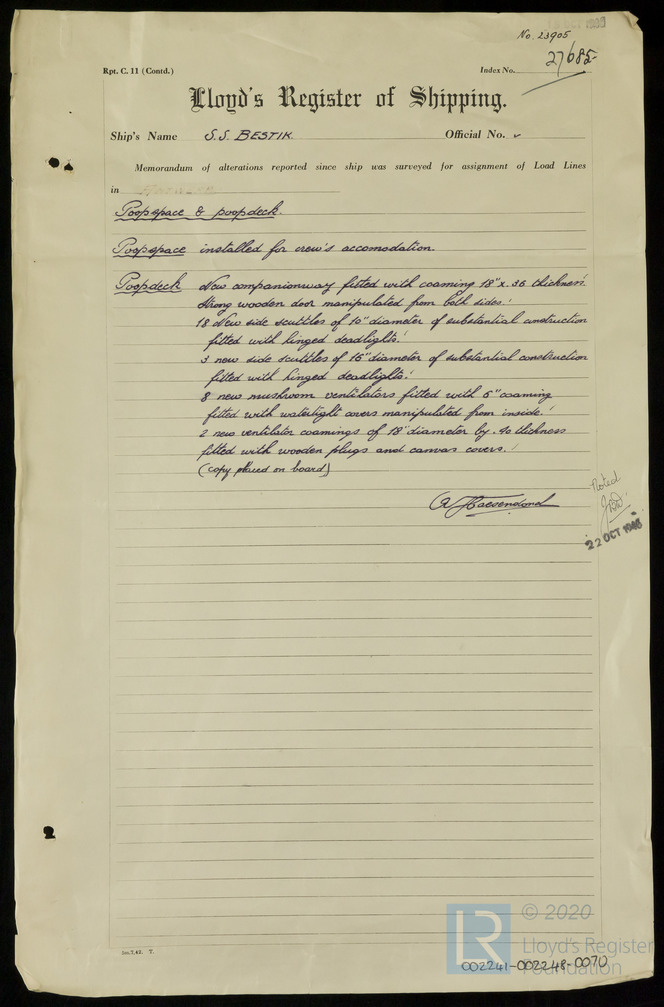 No. 23905
27685
Rpt. C. 11 (Contd.)
Index No.
Lloyd's Register of Shipping.
Ship's Name S.S. BESTIK. Official No.
Memorandum of alterations reported since ship was surveyed for assignment of Load Lines
in
Poopspace & poopdeck.
Poopspace installed for crew's accomodation
Poopdeck New companionway fitted with coaming 18" x .36 thickness.
Strong wooden door manipulated from both sides.
18 New side scuttles of 10" diameter of substantial construction
fitted with hinged deadlights.
3 new side scuttles of 15" diameter of substantial construction
fitted with hinged deadlights.
8 new mushroom ventilators fitted with 5" coaming
fitted with watertight covers manipulated from inside.
2 new ventilator coamings of 18" diameter by .40 thickness
fitted with wooden plugs and canvas covers.
(copy placed on board)
Noted
22 OCT
2m.7.42. T.
LR
© 2020
Lloyd's Register
Foundation
002241-002248-0070